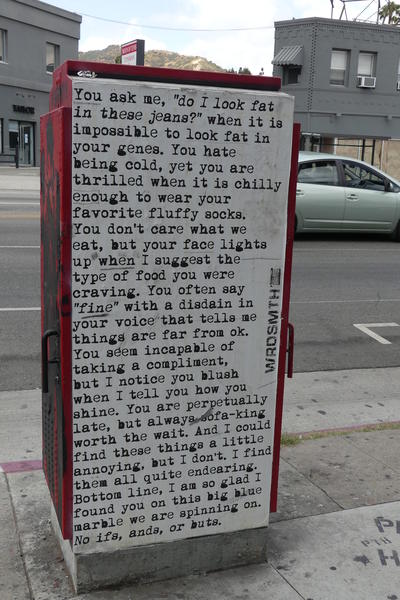 You ask me, "do I look fat
in these jeans?" when it is
impossible to look fat in
your genes. You hate
being cold, yet you are
thrilled when it is chilly
enough to wear your
favorite fluffy socks.
You don't care what we
eat, but your face lights
up when I suggest the
type of food you were
craving. You often say
"fine" with a disdain in
your voice that tells me
things are far from ok.
You seem incapable of
taking a compliment,
but I notice you blush
when I tell you how you
shine. You are perpetually
late, but always sofa-king
worth the wait. And I could
find these things a little
annoying, but I don't. I find
them all quite endearing.
Bottom line, I am so glad I
found you on this big blue
marble we are spinning on.
No ifs, ands, or buts.
WRDSMTH